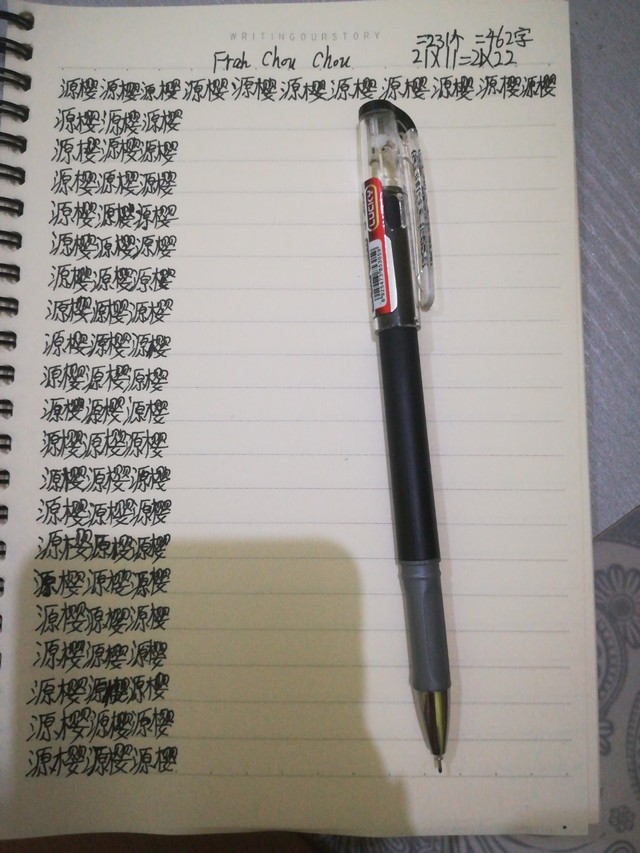 WRITINGOURSTORY
=231个 =462字
Frah Chou Chou 21X11=21X22
源樱源樱源樱 源樱 源樱 源樱 源樱 源樱 源樱 源樱源樱
源樱源樱源樱
源樱源樱源樱
源樱源樱源樱
源樱源樱源樱
源樱源樱源樱
源樱源樱源樱
源樱源樱源樱
源樱源樱源樱
源樱源樱源樱
源樱源樱源樱
源樱源樱源樱
源樱源樱源樱
源樱源樱源樱
源樱源樱源樱
源樱源樱源樱
源樱源樱源樱
源樱源樱源樱
源樱源樱源樱
源樱源樱源樱
源樱源樱源樱
LUCKY